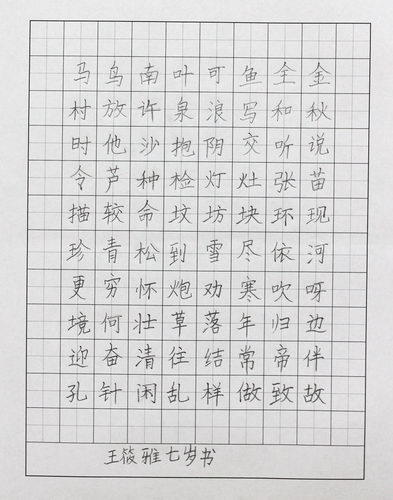 马鸟南叶可鱼全金
村放许泉浪写和秋
时他沙抱阴交听说
令芦种检灯灶张苗
描较命坟坊块环现
珍青松到雪尽依河
更穷怀炮劝寒吹呀
境何壮草落年归边
迎奋清往结常帝伴
孔针闲乱样做致故
王筱雅七岁书